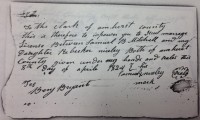 To the Clerk of amherst county
this is therefore to impower you to Ishue marriage
Licence Between Samuel B. Mitchell and
Daughter Rebecker mosley Both of amherst
County given under my hands and seals this
5th day of april 1824
mosley
Ben Bryant mark